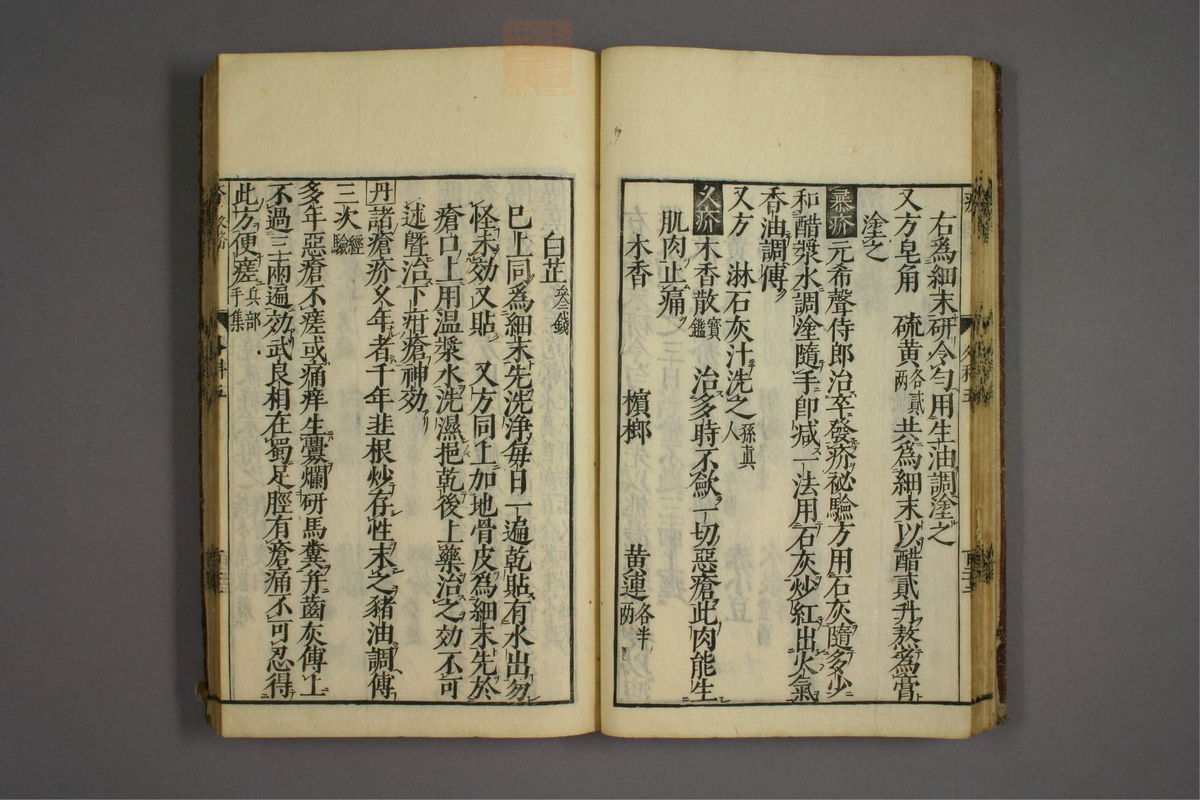 右爲細末研令勻用生油調塗之
又方皂角 硫黃各貳兩共為細末以醋貳升熬爲膏
塗之
元希聲侍郎治卒發疥祕驗方用石灰隨多少
和醋漿水調塗隨手卽減一法用石灰炒紅出火氣
香油調傅
又方 淋石灰汁洗之孫真人
久疥 木香散寶鑑 治多時不歛一切惡瘡此肉能生
肌肉止痛
木香 檳榔 黃連各半兩
白芷叁錢
已上同爲細末先洗淨每日一遍乾貼有水出勿
怪未効又貼 又方同上加地骨皮爲細末先於
瘡口上用溫漿水洗濕挹乾後上藥治之効不可
述曁治下疳瘡神効
丹諸瘡疥久年者千年韭根炒存性末之豬油調傅
三次經驗
多年惡瘡不瘥或痛痒生䘌爛研馬糞并齒灰傅上
不過三兩遍効武良相在蜀足脛有瘡痛不可忍得
此方便瘥兵部手集